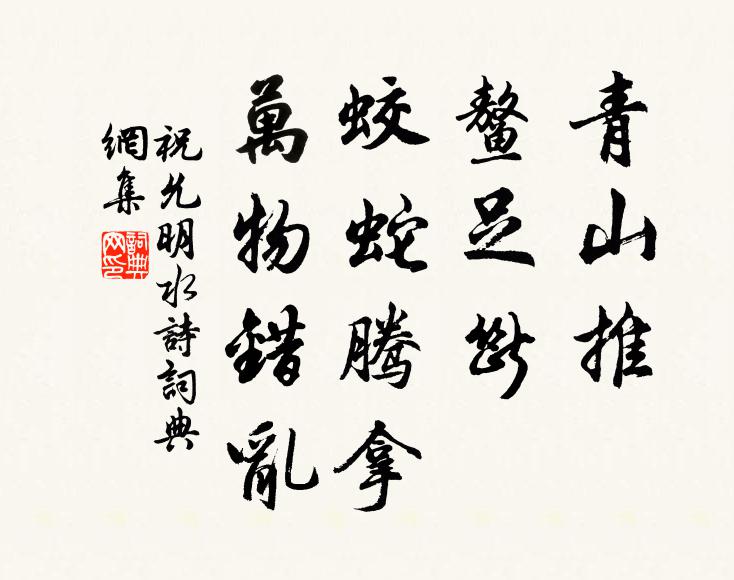 青山推
鳌足断
蛟蛇腾拿
萬物錯亂
祝允明水詩詞典
網集
詞典
网印